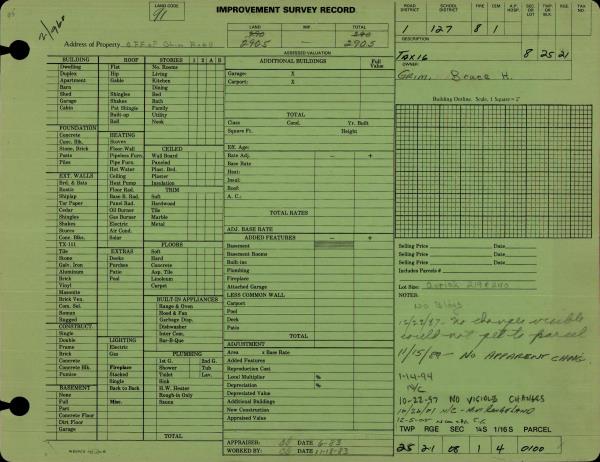 IMPROVEMENT SURVEY RECORD
LAND CODE
91
LAND IMP. TOTAL
2905 2905
Address of Property
ASSESSED VALUATION
ROAD DISTRICT SCHOOL DISTRICT FIRE CEM. A.P. HOSP. SEC OR LOT TWP. OR BLK. RGE. TAX NO.
1 127 8 1
DESCRIPTION
TAX 16 8 25 21
OWNER:
GRIM, Bruce H.
Building Outline. Scale, 1 Square = 2'
BUILDING ROOF STORIES 1 2 A B
Dwelling Flat No. Rooms
Duplex Hip Living
Apartment Gable Kitchen
Barn Dining
Shed Shingles Bed
Garage Shakes Bath
Cabin Pat Shingle Family
Built-up Utility
Roll Nook
FOUNDATION
Concrete HEATING
Conc. Blk. Stoves
Stone, Brick Floor-Wall CEILED
Posts Pipeless Furn. Wall Board
Piles Pipe Furn. Paneled
Hot Water Plast. Brd.
EXT. WALLS Ceiling Plaster
Brd. & Bats Heat Pump Insulation
Rustic Floor Rad. TRIM
Shiplap Base B. Rad. Soft
Tar Paper Panel Rad. Hardwood
Cedar Oil Burner Tile
Shingles Gas Burner Marble
Shakes Electric Metal
Stucco Air Cond.
Conc. Blks. Solar
TX-111 FLOORS
Tile EXTRAS Soft
Stone Decks Hard
Galv. Iron Porches Concrete
Aluminum Patio Asp. Tile
Brick Pool Linoleum
Vinyl Carpet
Masonite
Brick Ven. BUILT-IN APPLIANCES
Com. Sol. Range & Oven
Roman Hood & Fan
Rugged Garbage Disp.
CONSTRUCT. Dishwasher
Single Inter Com.
Double LIGHTING Bar-B-Que
Frame Electric
Brick Gas PLUMBING
Concrete 1st G. 2nd G.
Concrete Blk. Fireplace Shower Tub
Pumice Stacked Toilet Lav.
Single Sink
BASEMENT Back to Back H.W. Heater
None Rough-in Only
Full Misc. Sauna
Part
Concrete Floor
Dirt Floor
Garage TOTAL
ADDITIONAL BUILDINGS Full Value
Garage: X
Carport: X
TOTAL
Class Cond. Yr. Built
Square Ft. Height
Eff. Age:
Rate Adj. - +
Base Rate
Heat:
Insul:
Roof:
A. C.:
TOTAL RATES
ADJ. BASE RATE
ADDED FEATURES - +
Basement
Basement Rooms
Built-ins
Plumbing
Fireplace
Attached Garage
LESS COMMON WALL
Carport
Pool
Deck
Patio
TOTAL
ADJUSTMENT
Area x Base Rate
Added Features
Reproduction Cost
Local Multiplier %
Depreciation %
Depreciated Value
Additional Buildings
New Construction
Appraised Value
APPRAISER: DATE 6-83
WORKED BY: DATE 11-18-83
Selling Price Date
Selling Price Date
Selling Price Date
Includes Parcels #
Lot Size:
NOTES:
No Bldgs
12/23/87 - no changes visible
could not get to parcel
11/15/89 - NO APPARENT CHANG.
1-14-94
N/C
10-22-97 NO VISIBLE CHANGES
TWP RGE SEC ¼S 1/16 S PARCEL
25 21 08 1 4 0100